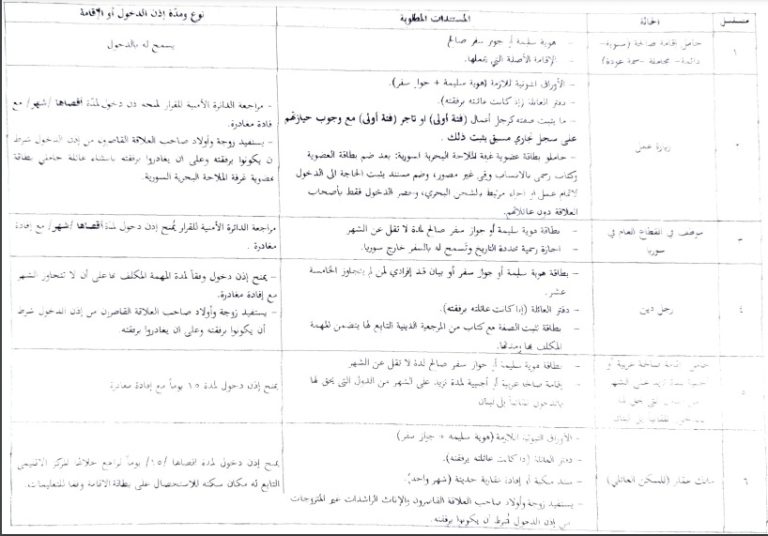 متسلسل
الحالة
المستندات المطلوبة
نوع ومدّة إذن الدخول أو الإقامة
١
حامل إقامة صالحة (سنوية-
دائمة- مجاملة- سمة عودة)
- هوية سليمة أو جواز سفر صالح
- الإقامة الأصلية التي يحملها.
يسمح له بالدخول
زيارة عمل
- الأوراق الثبوتية اللازمة (هوية سليمة + جواز سفر).
- دفتر العائلة (إذا كانت عائلته برفقته).
- ما يثبت صفته كرجل أعمال (فئة أولى) او تاجر (فئة أولى) مع وجوب حيازتهم
على سجل تجاري مسبق يثبت ذلك .
- حاملو بطاقة عضوية غرفة الملاحة البحرية السورية: بعد ضم بطاقة العضوية
وكتاب رسمي بالانتساب وفي غير مصور، وضم مستند يثبت الحاجة الى الدخول
لإتمام عمل او اجراء مرتبط بالشحن البحري، وحصر الدخول فقط بأصحاب
العلاقة دون عائلاتهم.
- مراجعة الدائرة الأمنية للقرار لمنحه إذن دخول لمدّة اقصاها /شهر/ مع
إفادة مغادرة.
- يستفيد زوجة وأولاد صاحب العلاقة القاصرون من إذن الدخول شرط
أن يكونوا برفقته وعلى ان يغادروا برفقته باستثناء عائلة حاملي بطاقة
عضوية غرفة الملاحة البحرية السورية.
٣
موظف في القطاع العام في
سوريا
- بطاقة هوية سليمة أو جواز سفر صالح لمدة لا تقل عن الشهر
- اجازة رسمية محددة التاريخ وتسمح له بالسفر خارج سوريا.
مراجعة الدائرة الأمنية للقرار يُمنح إذن دخول لمدة اقصاها /شهر/ مع إفادة
مغادرة .
٤
رجل دين
- بطاقة هوية سليمة أو جواز سفر أو بيان قيد إفرادي لمن لم يتجاوز الخامسة
عشر.
- دفتر العائلة (إذا كانت عائلته برفقته).
- بطاقة تثبت الصفة مع كتاب من المرجعية الدينية التابع لها يتضمن المهمة
المكلف بها ومدتها.
- يمنح إذن دخول وفقاً لمدة المهمة المكلف بها على أن لا تتجاوز الشهر
مع إفادة مغادرة.
- يستفيد زوجة وأولاد صاحب العلاقة القاصرون من إذن الدخول شرط
أن يكونوا برفقته وعلى ان يغادروا برفقته.
٥
حامل إقامة صالحة عربية أو
- بطاقة هوية سليمة أو جواز سفر صالح لمدة لا تقل عن الشهر
- إقامة صالحة عربية أو أجنبية لمدة تزيد على الشهر من الدول التي يحق لها
بالدخول إلى لبنان
يمنح إذن دخول لمدة ١٥ يوماً مع إفادة مغادرة
٦
مالك عقار (للسكن العائلي)
- الأوراق الثبوتية اللازمة (هوية سليمة + جواز سفر)
- دفتر العائلة (إذا كانت عائلته برفقته).
- سند ملكية أو إفادة عقارية حديثة (شهر واحد).
- يستفيد زوجة وأولاد صاحب العلاقة القاصرون والإناث الراشدات غير المتزوجات
من إذن الدخول شرط أن يكونوا برفقته.
يمنح إذن دخول لمدة اقصاها /١٥/ يوماً ليراجع خلالها المركز الاقليمي
التابع له مكان سكنه للاستحصال على بطاقة الاقامة وفقا للتعليمات.